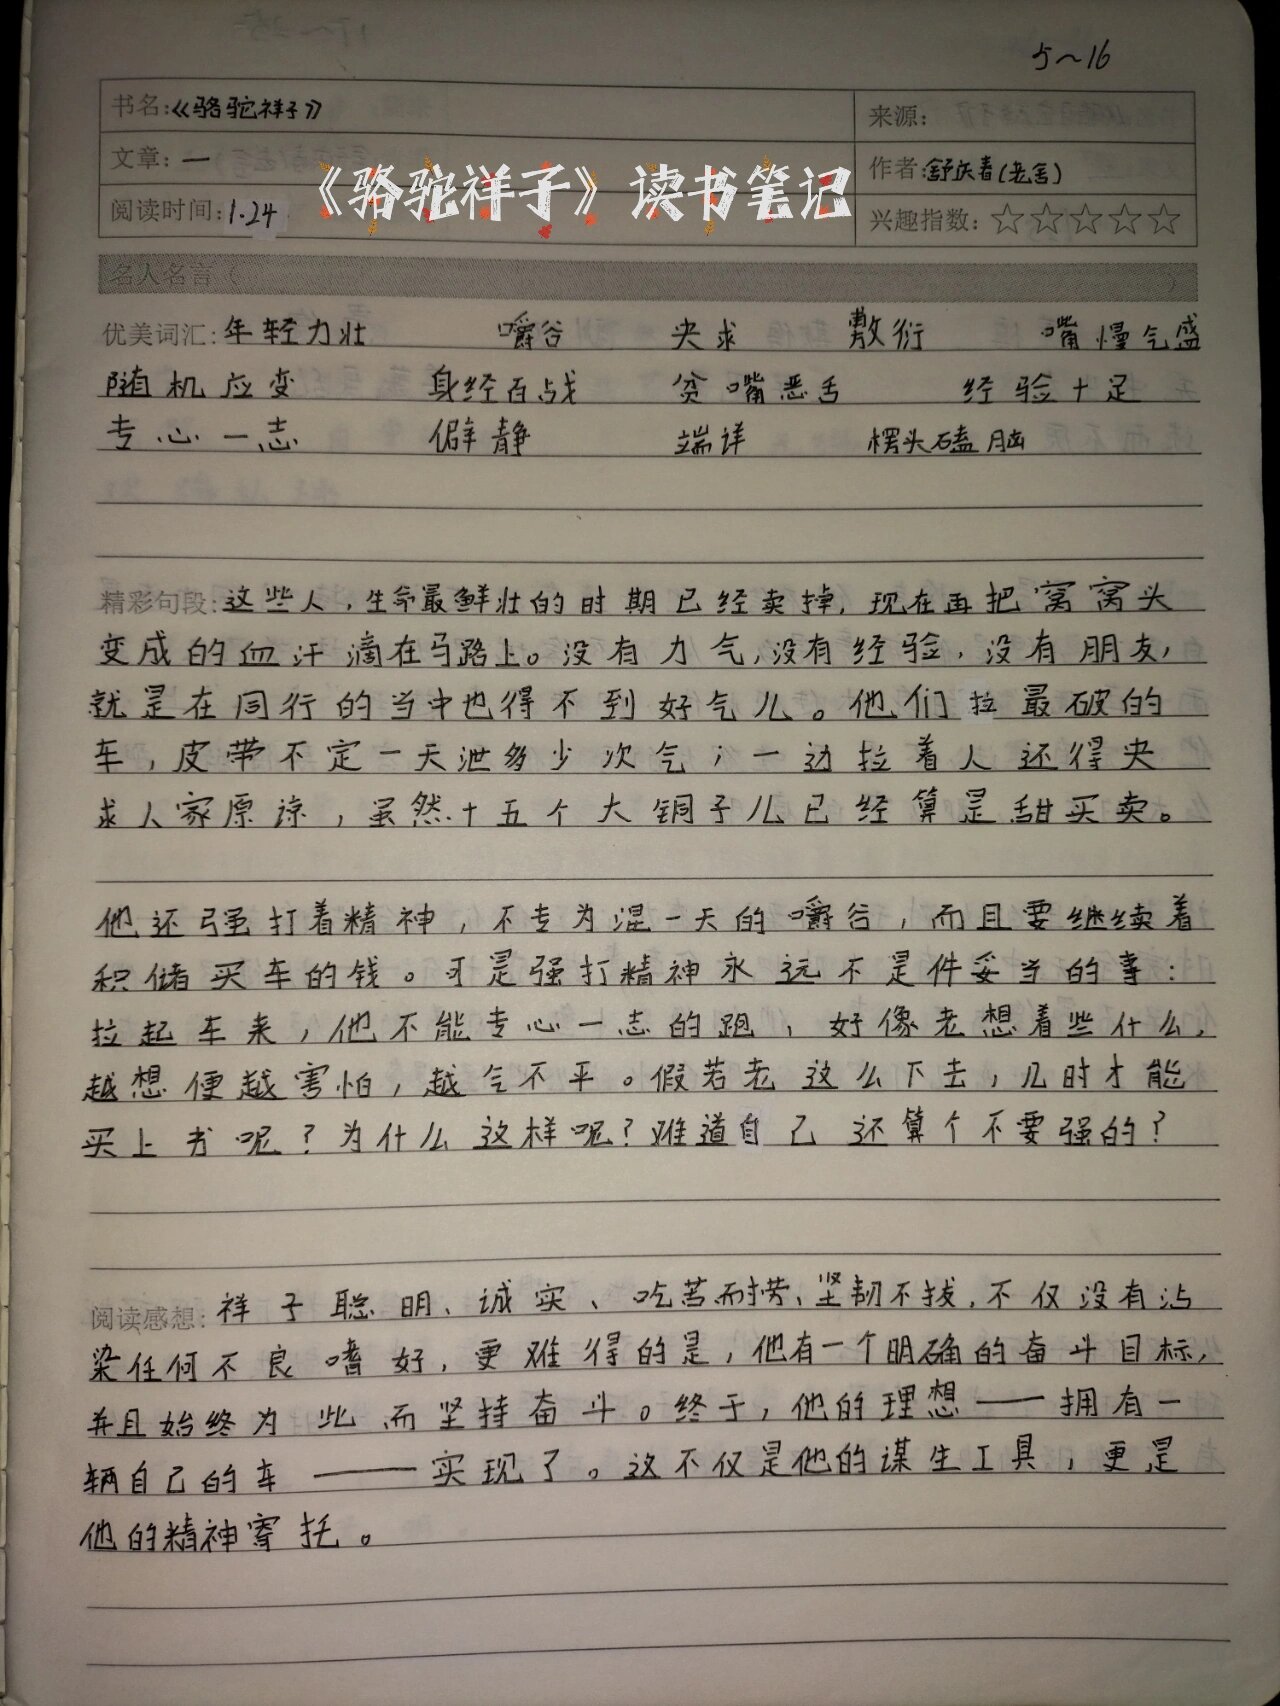 5~16
书名:《骆驼祥子》 来源:
文章: 一 作者:舒庆春(老舍)
《骆驼祥子》读书笔记
阅读时间:1.24 兴趣指数:☆☆☆☆☆
名人名言( )
优美词汇:年轻力壮 嚼谷 央求 敷衍 嘴慢气盛
随机应变 身经百战 贫嘴恶舌 经验十足
专心一志 僻静 端详 楞头磕脑
精彩句段:这些人,生命最鲜壮的时期已经卖掉,现在再把窝窝头
变成的血汗滴在马路上。没有力气,没有经验,没有朋友,
就是在同行的当中也得不到好气儿。他们拉最破的
车,皮带不定一天泄多少次气;一边拉着人还得央
求人家原谅,虽然十五个大铜子儿已经算是甜买卖。
他还强打着精神,不专为混一天的嚼谷,而且要继续着
积储买车的钱。可是强打精神永远不是件妥当的事:
拉起车来,他不能专心一志的跑,好像老想着些什么,
越想便越害怕,越气不平。假若老这么下去,几时才能
买上书呢?为什么这样呢?难道自己还算个不要强的?
阅读感想:祥子聪明、诚实、吃苦而捞、坚韧不拔,不仅没有沾
染任何不良嗜好,更难得的是,他有一个明确的奋斗目标,
并且始终为此而坚持奋斗。终于,他的理想——拥有一
辆自己的车——实现了。这不仅是他的谋生工具,更是
他的精神寄托。